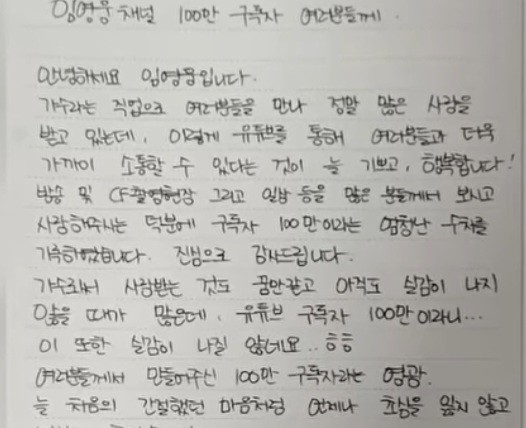 임영웅 채널 100만 구독자 여러분들께.
안녕하세요 임영웅입니다.
가수라는 직업으로 여러분들을 만나 정말 많은 사랑을
받고 있는데, 이렇게 유튜브를 통해 여러분들과 더욱
가까이 소통할 수 있다는 것이 늘 기쁘고, 행복합니다!
방송 및 CF촬영현장 그리고 일상 등을 많은 분들께서 보시고
사랑해주시는 덕분에 구독자 100만이라는 엄청난 수치를
기록하였습니다. 진심으로 감사드립니다.
가수로서 사랑받는 것도 꿈만같고 아직도 실감이 나지
않을 때가 많은데, 유튜브 구독자 100만이라니...
이 또한 실감이 나질 않네요..ㅎㅎ
여러분들께서 만들어주신 100만 구독자라는 영광.
늘 처음의 간절했던 마음처럼 언제나 초심을 잃지 않고